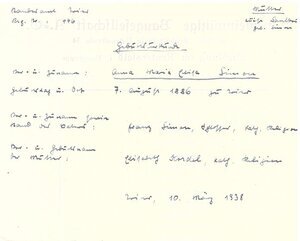 Standesamt Trier
Reg. Nr. 996
Mutter
geb. Simon
Geburtsurkunde
Vor- u. Zuname: Anna Maria Luise Simon
Geburtstag u. Ort 7. August 1886 zu Trier
Vor- u. Zuname
Stand der Eltern: Franz Simon, Schlosser, kath. Religion
Vor- u. Geburtsname
der Mutter: Elisabeth Kordel, kath. Religion
Trier, 10. März 1938